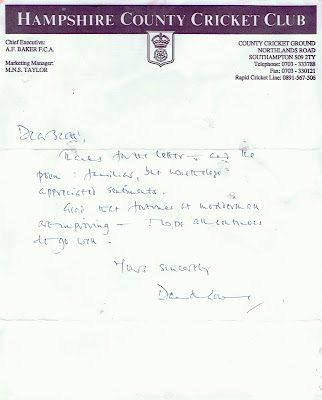 HAMPSHIRE COUNTY CRICKET CLUB
Chief Executive:
A.F. BAKER F.C.A.
Marketing Manager:
M.N.S. TAYLOR
COUNTY CRICKET GROUND
NORTHLANDS ROAD
SOUTHAMPTON SO9 2TY
Telephone: 0703 - 333788
Fax: 0703 - 330121
Rapid Cricket Line: 0891-567-506
Dear
Thanks for the letter, and the
poem : familiar, but nonetheless
appreciated sentiments.
Glad that fortunes at
are improving — I hope all continues
to go well.
Yours sincerely
David